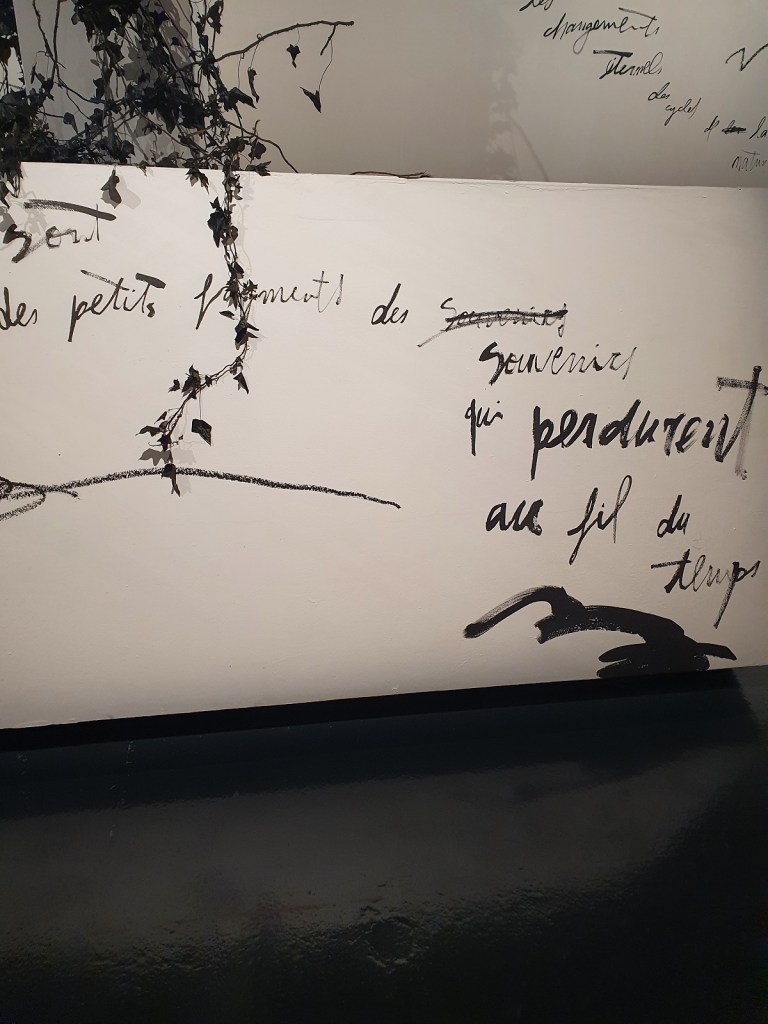 les
changements
éternels
des
cycles
de la
natur
sont
des petits fragments des souvenirs
souvenirs
qui perdurent
au fil du
temps